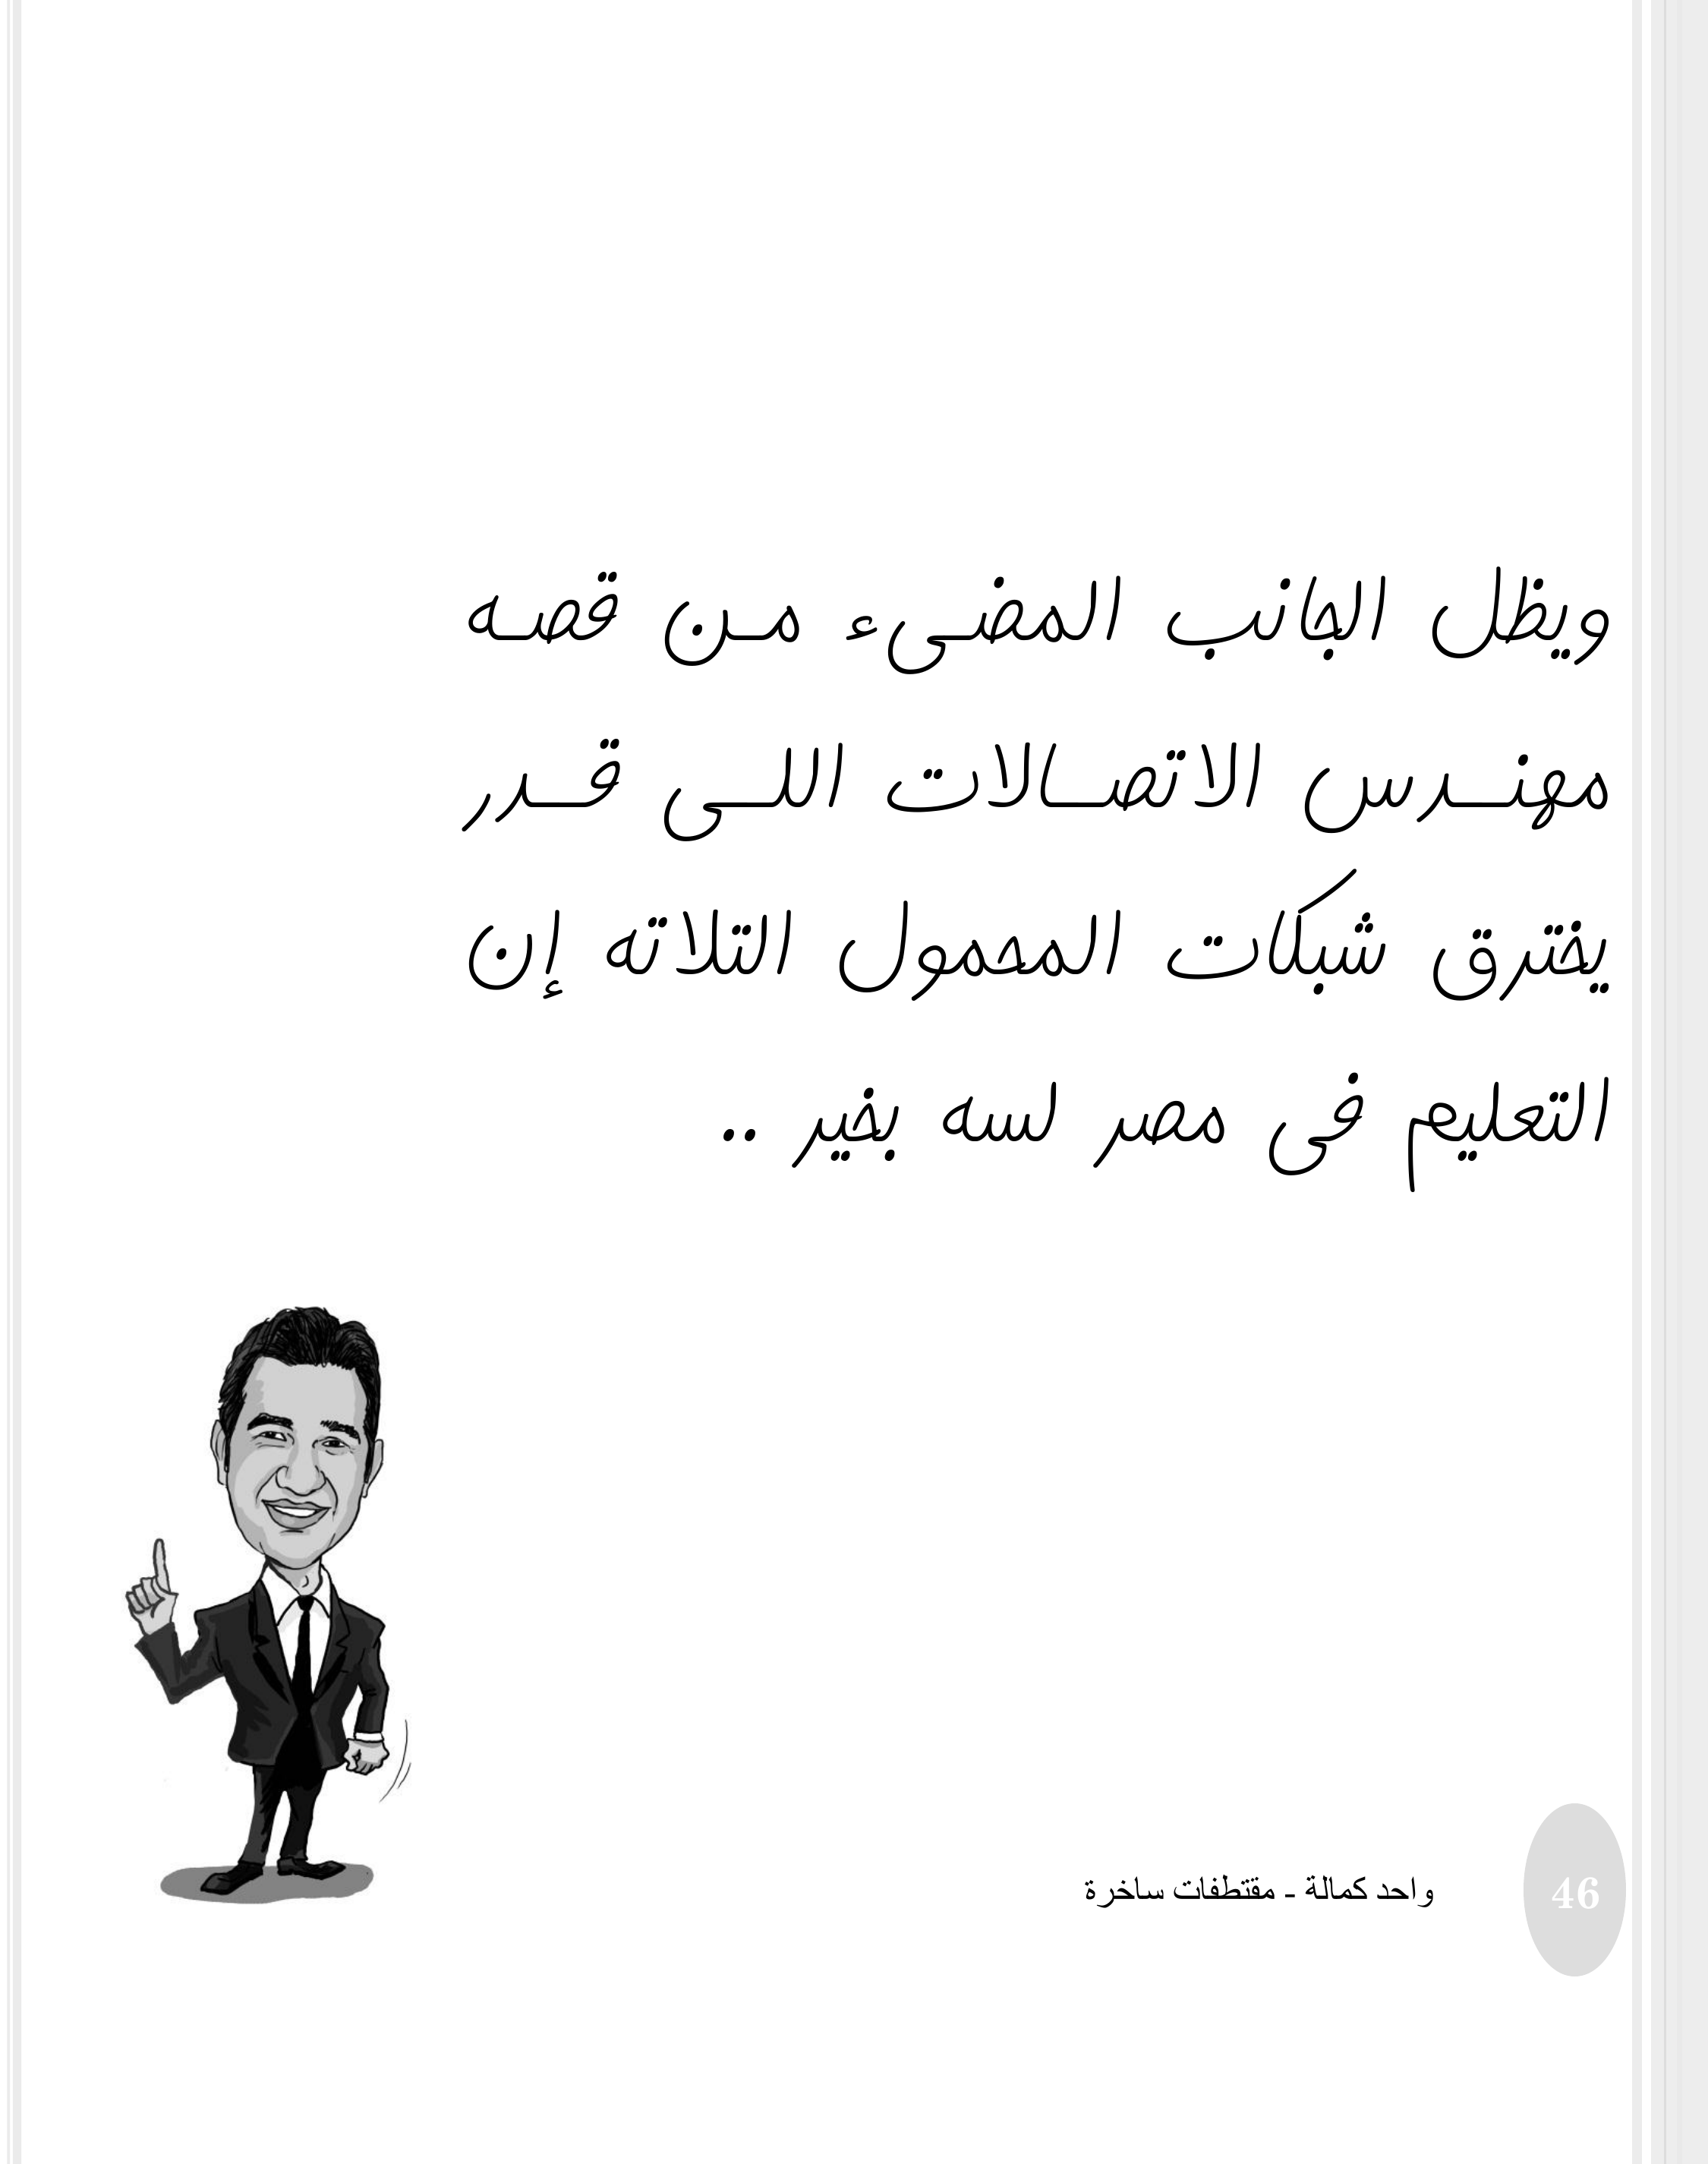 ويظل الجانب المضىء من قصه
مهندس الاتصالات اللى قدر
يخترق شبكات المحمول التلاته إن
التعليم فى مصر لسه بخير ..
واحد كمالة - مقتطفات ساخرة
46